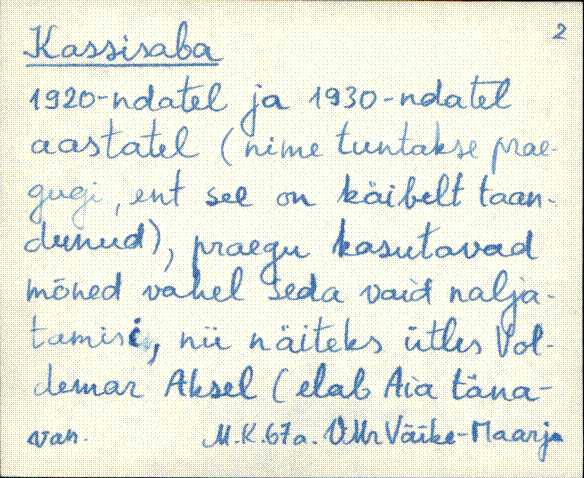 2
Kassisaba
1920-ndatel ja 1930-ndatel
aastatel (nime tuntakse prae-
gugi, ent see on käibelt taan-
dunud), praegu kasutavad
mõned vahel seda vaid nalja-
tamisi, nii näiteks ütles Vol-
demar Aksel (elab Aia täna-
van. M.K. 67 a. VMr Väike-Maarja